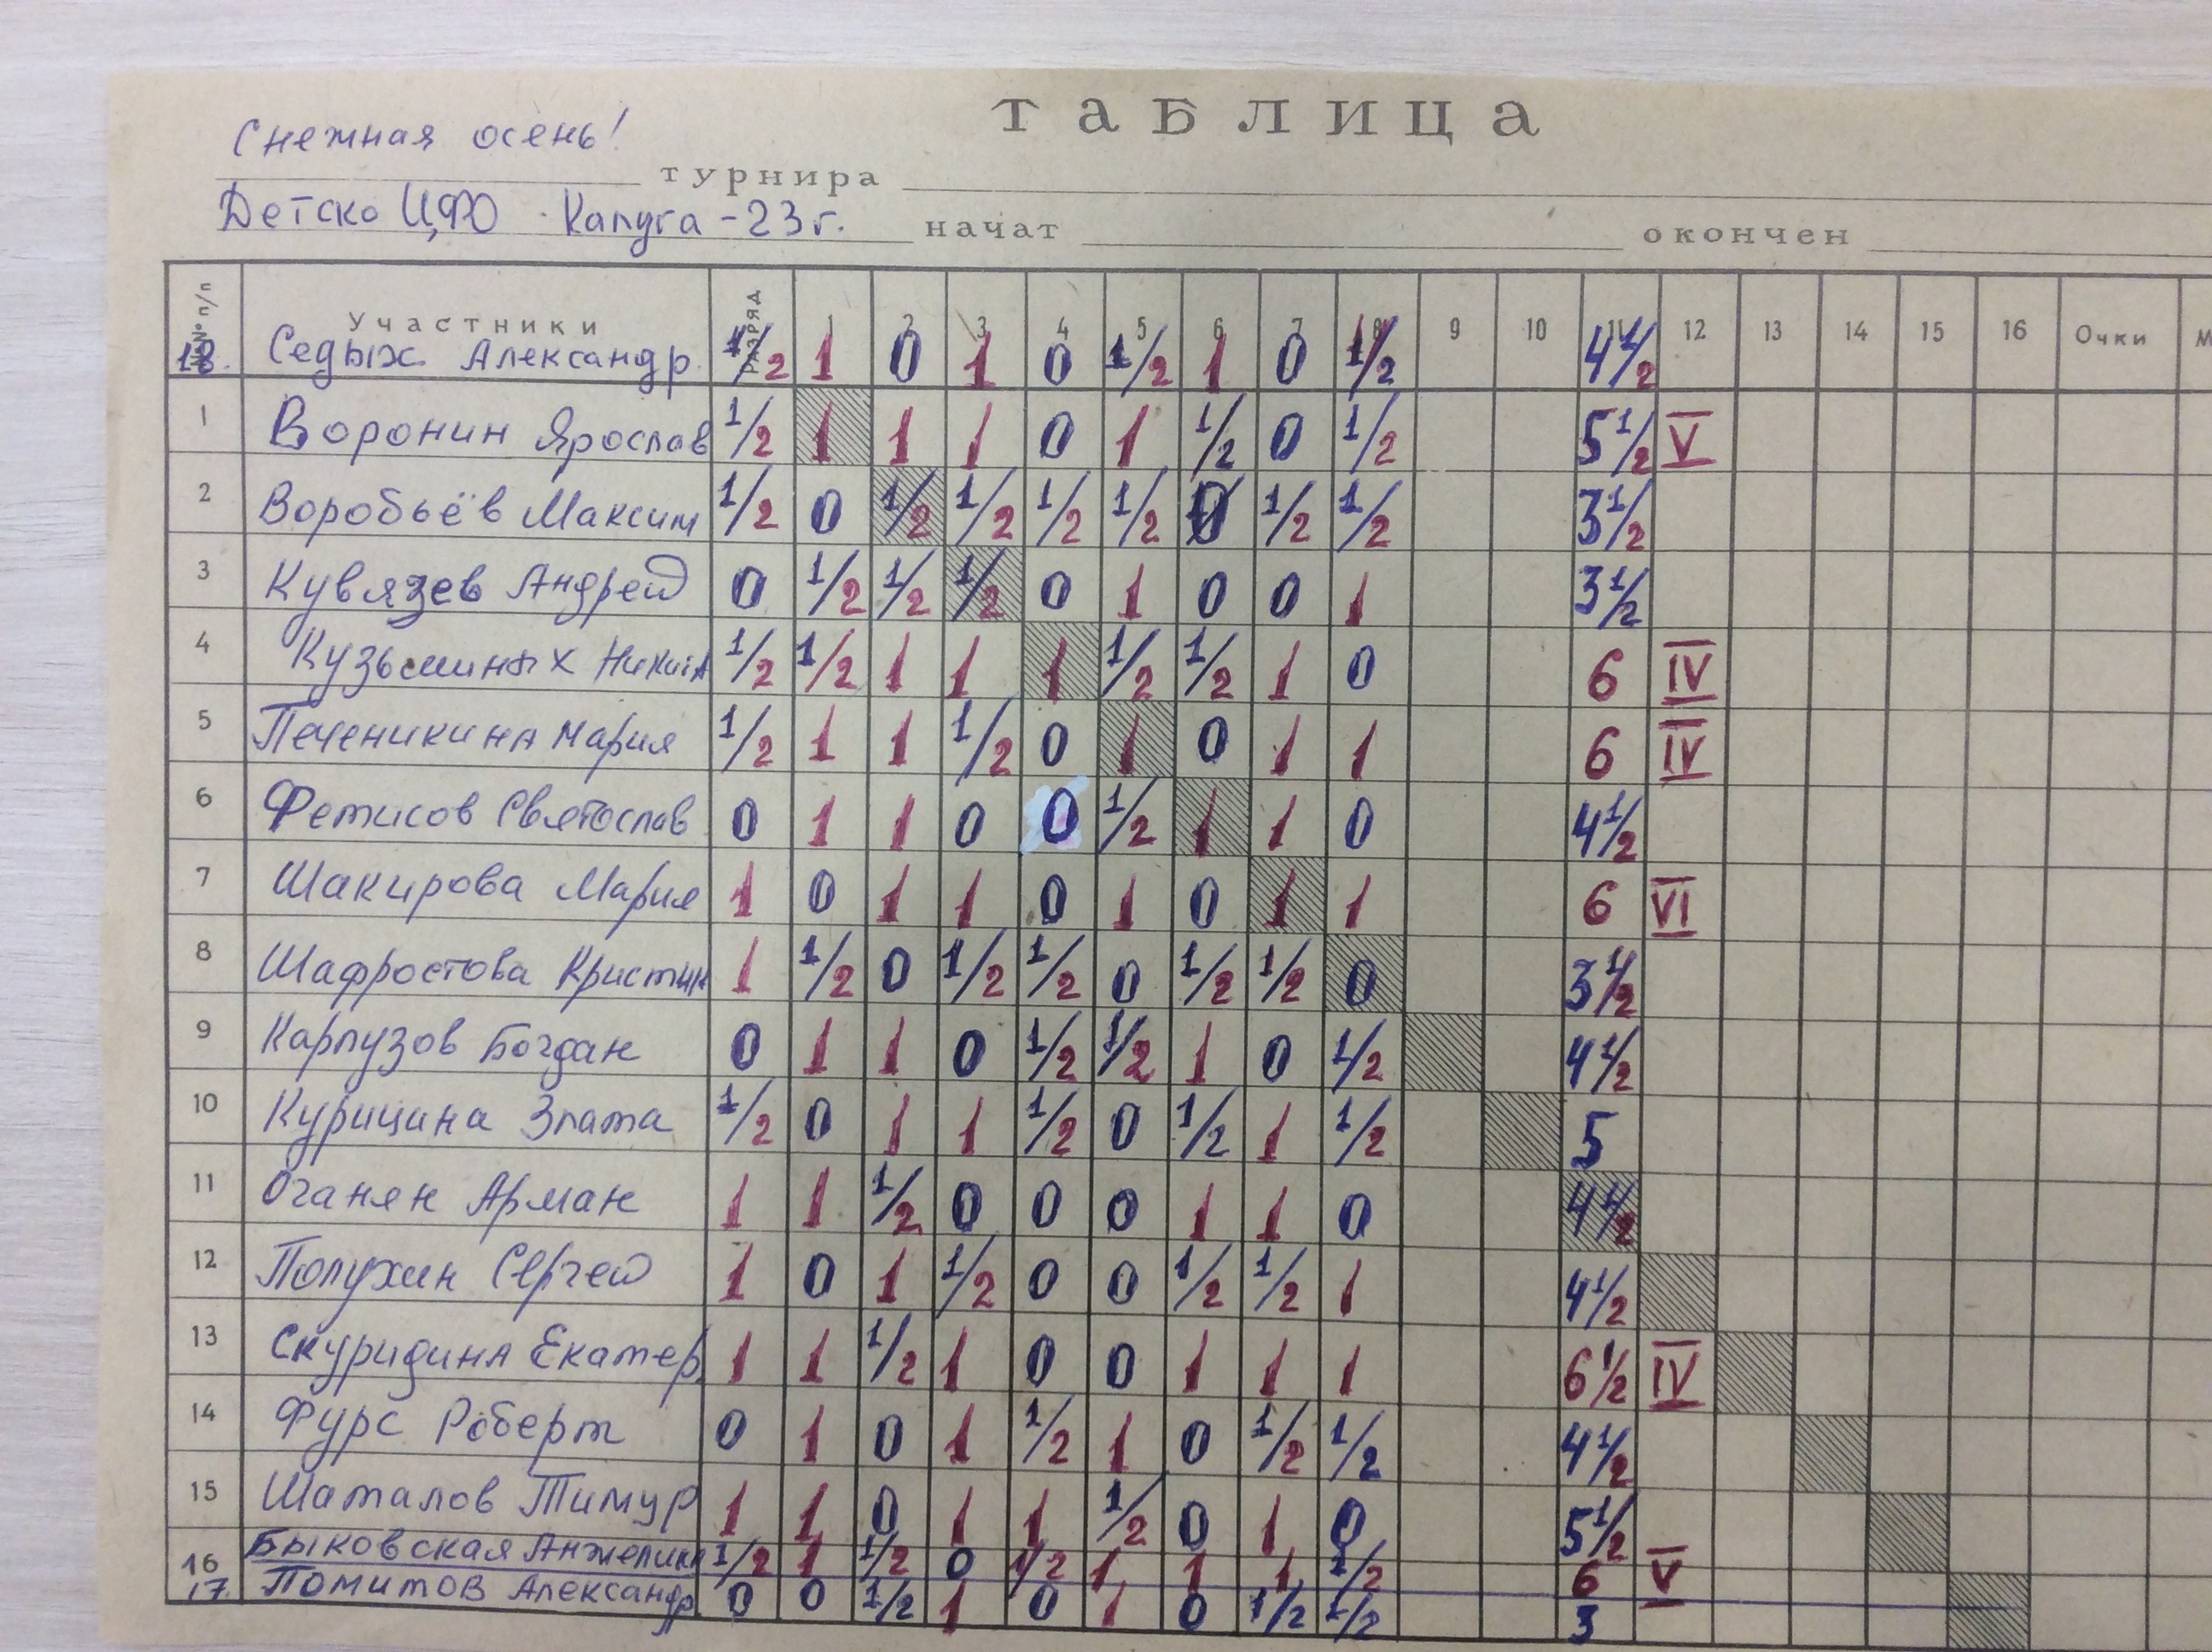 ТАБЛИЦА
Снежная осень! турнира
Детско ЦФО Калуга-23г. начат окончен
№№ п/п Участники РАЗРЯД 1 2 3 4 5 6 7 8 9 10 11 12 13 14 15 16 Очки
18. Седых Александр 1/2 1 0 1 0 1/2 1 0 1/2 4 1/2
1 Воронин Ярослав 1/2 1 1 1 0 1 1/2 0 1/2 5 1/2 V
2 Воробьёв Максим 1/2 0 1/2 1/2 1/2 1/2 0 1/2 1/2 3 1/2
3 Кувязев Андрей 0 1/2 1/2 1/2 0 1 0 0 1 3 1/2
4 Кузьминых Никита 1/2 1/2 1 1 1 1/2 1/2 1 0 6 IV
5 Печеникина Мария 1/2 1 1 1/2 0 1 0 1 1 6 IV
6 Фетисов Святослав 0 1 1 0 0 1/2 1 1 0 4 1/2
7 Шакирова Мария 1 0 1 1 0 1 0 1 1 6 VI
8 Шафростова Кристин 1 1/2 0 1/2 1/2 0 1/2 1/2 0 3 1/2
9 Карпузов Богдан 0 1 1 0 1/2 1/2 1 0 1/2 4 1/2
10 Курицина Злата 1/2 0 1 1 1/2 0 1/2 1 1/2 5
11 Оганян Арман 1 1 1/2 0 0 0 1 1 0 4 1/2
12 Полухин Сергей 1 0 1 1/2 0 0 1/2 1/2 1 4 1/2
13 Скуридина Екатер. 1 1 1/2 1 0 0 1 1 1 6 1/2 IV
14 Фурс Роберт 0 1 0 1 1/2 1 0 1/2 1/2 4 1/2
15 Шаталов Тимур 1 1 0 1 1 1/2 0 1 0 5 1/2
16 Быковская Анжелика 1/2 1 1/2 0 1/2 1 1 1 1/2 6 V
17. Помитов Александр 0 0 1/2 1 0 1 0 1/2 1/2 3